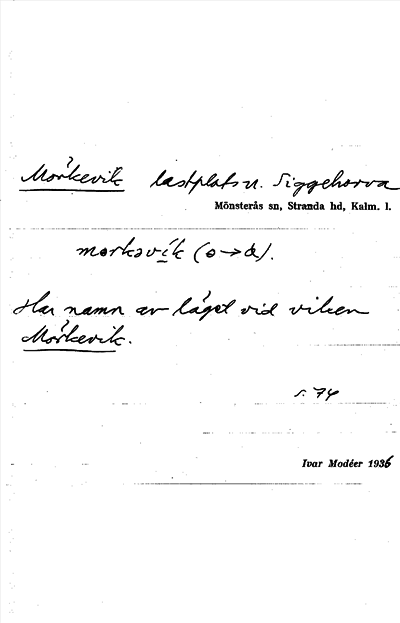 Mörkevik lastplats u. Siggehorva
Mönsterås sn, Stranda hd, Kalm. l.
morkəvik (o→ö).
Har namn av läget vid viken
Mörkevik.
s. 74
Ivar Modéer 1936